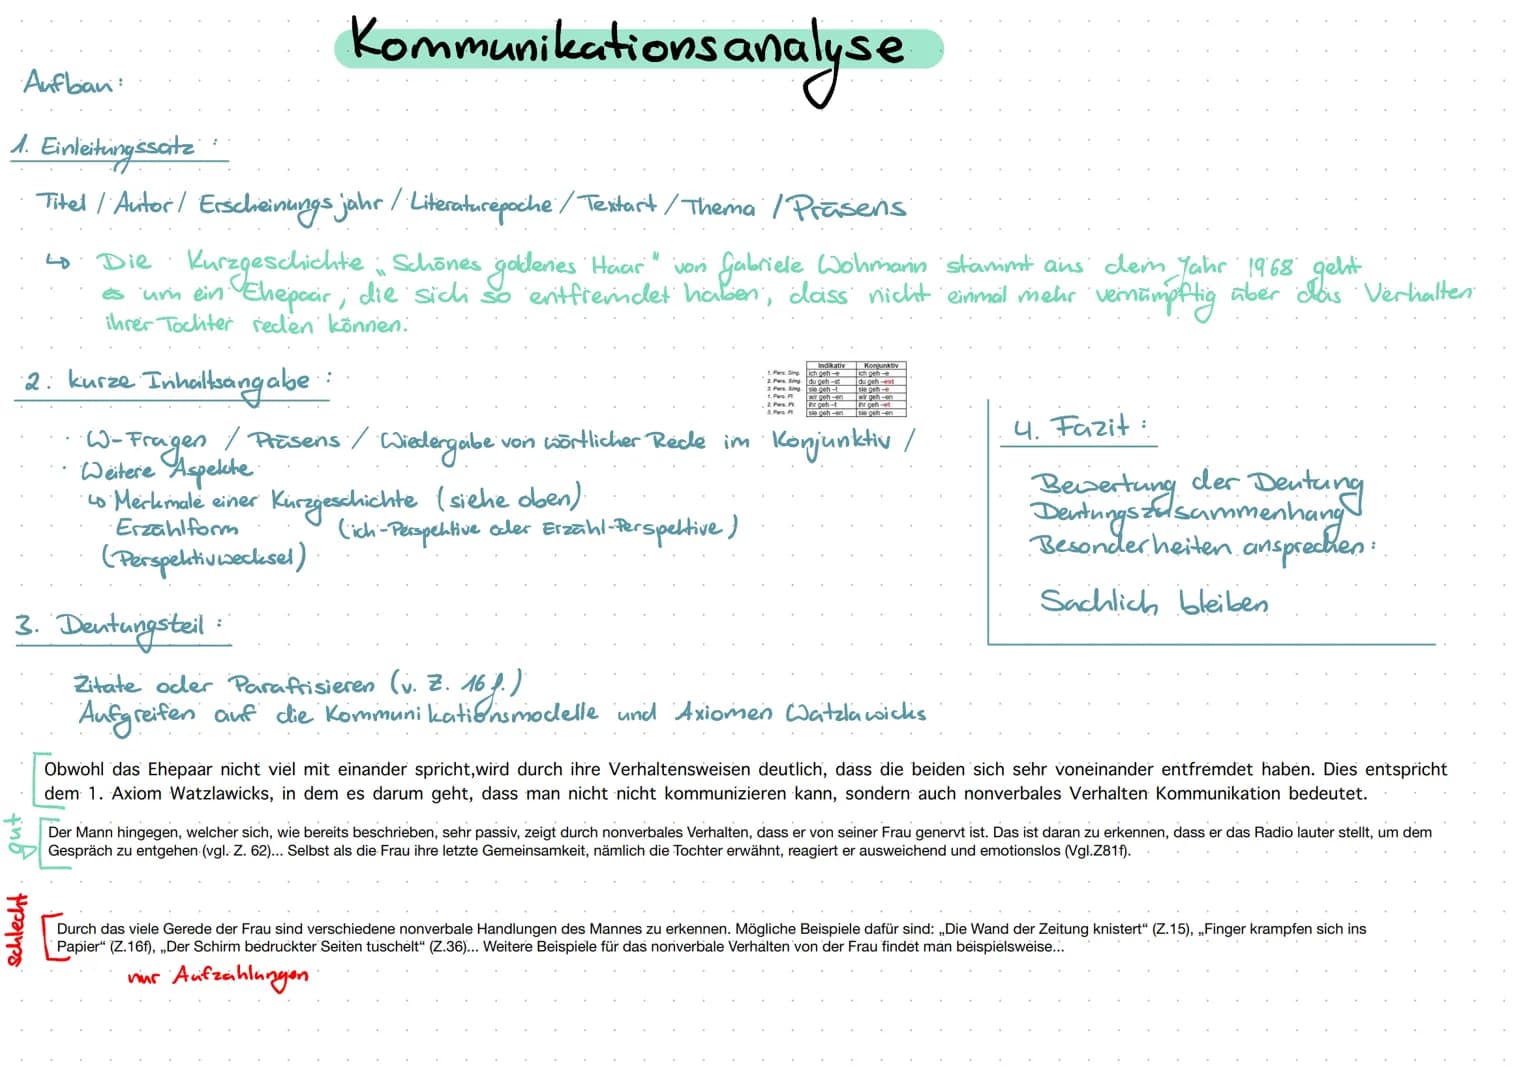 Kommunikationsanalyse
Aufbau:
1. Einleitungssatz :
Titel / Autor / Erscheinungsjahr / Literaturepoche / Textart / Thema / Präsens
↳ Die Kurzgeschichte „Schönes goldenes Haar" von Gabriele Wohmann stammt aus dem Jahr 1968 geht
es um ein Ehepaar, die sich so entfremdet haben, dass nicht einmal mehr vernümpftig über das Verhalten
ihrer Tochter reden können.
2. kurze Inhaltsangabe :
Indikativ Konjunktiv
1. Pers. Sing. ich geh -e ich geh -e
2. Pers. Sing. du geh -st du geh -est
3. Pers. Sing. sie geh -t sie geh -e
1. Pers. Pl wir geh -en wir geh -en
2. Pers. Pl ihr geh -t ihr geh -et
3. Pers. Pl sie geh -en sie geh -en
· W-Fragen / Präsens / Wiedergabe von wörtlicher Rede im Konjunktiv /
· Weitere Aspekte
↳ Merkmale einer Kurzgeschichte (siehe oben)
Erzählform (ich-Perspektive oder Erzähl-Perspektive)
(Perspektivwechsel)
3. Deutungsteil :
Zitate oder Parafrisieren (v. Z. 16 f.)
Aufgreifen auf die Kommunikationsmodelle und Axiomen Watzlawicks
4. Fazit :
Bewertung der Deutung
Deutungszusammenhang
Besonderheiten ansprechen:
Sachlich bleiben
gut
Obwohl das Ehepaar nicht viel mit einander spricht,wird durch ihre Verhaltensweisen deutlich, dass die beiden sich sehr voneinander entfremdet haben. Dies entspricht
dem 1. Axiom Watzlawicks, in dem es darum geht, dass man nicht nicht kommunizieren kann, sondern auch nonverbales Verhalten Kommunikation bedeutet.
Der Mann hingegen, welcher sich, wie bereits beschrieben, sehr passiv, zeigt durch nonverbales Verhalten, dass er von seiner Frau genervt ist. Das ist daran zu erkennen, dass er das Radio lauter stellt, um dem
Gespräch zu entgehen (vgl. Z. 62)... Selbst als die Frau ihre letzte Gemeinsamkeit, nämlich die Tochter erwähnt, reagiert er ausweichend und emotionslos (Vgl.Z81f).
schlecht
Durch das viele Gerede der Frau sind verschiedene nonverbale Handlungen des Mannes zu erkennen. Mögliche Beispiele dafür sind: „Die Wand der Zeitung knistert“ (Z.15), „Finger krampfen sich ins
Papier“ (Z.16f), „Der Schirm bedruckter Seiten tuschelt“ (Z.36)... Weitere Beispiele für das nonverbale Verhalten von der Frau findet man beispielsweise...
nur Aufzählungen